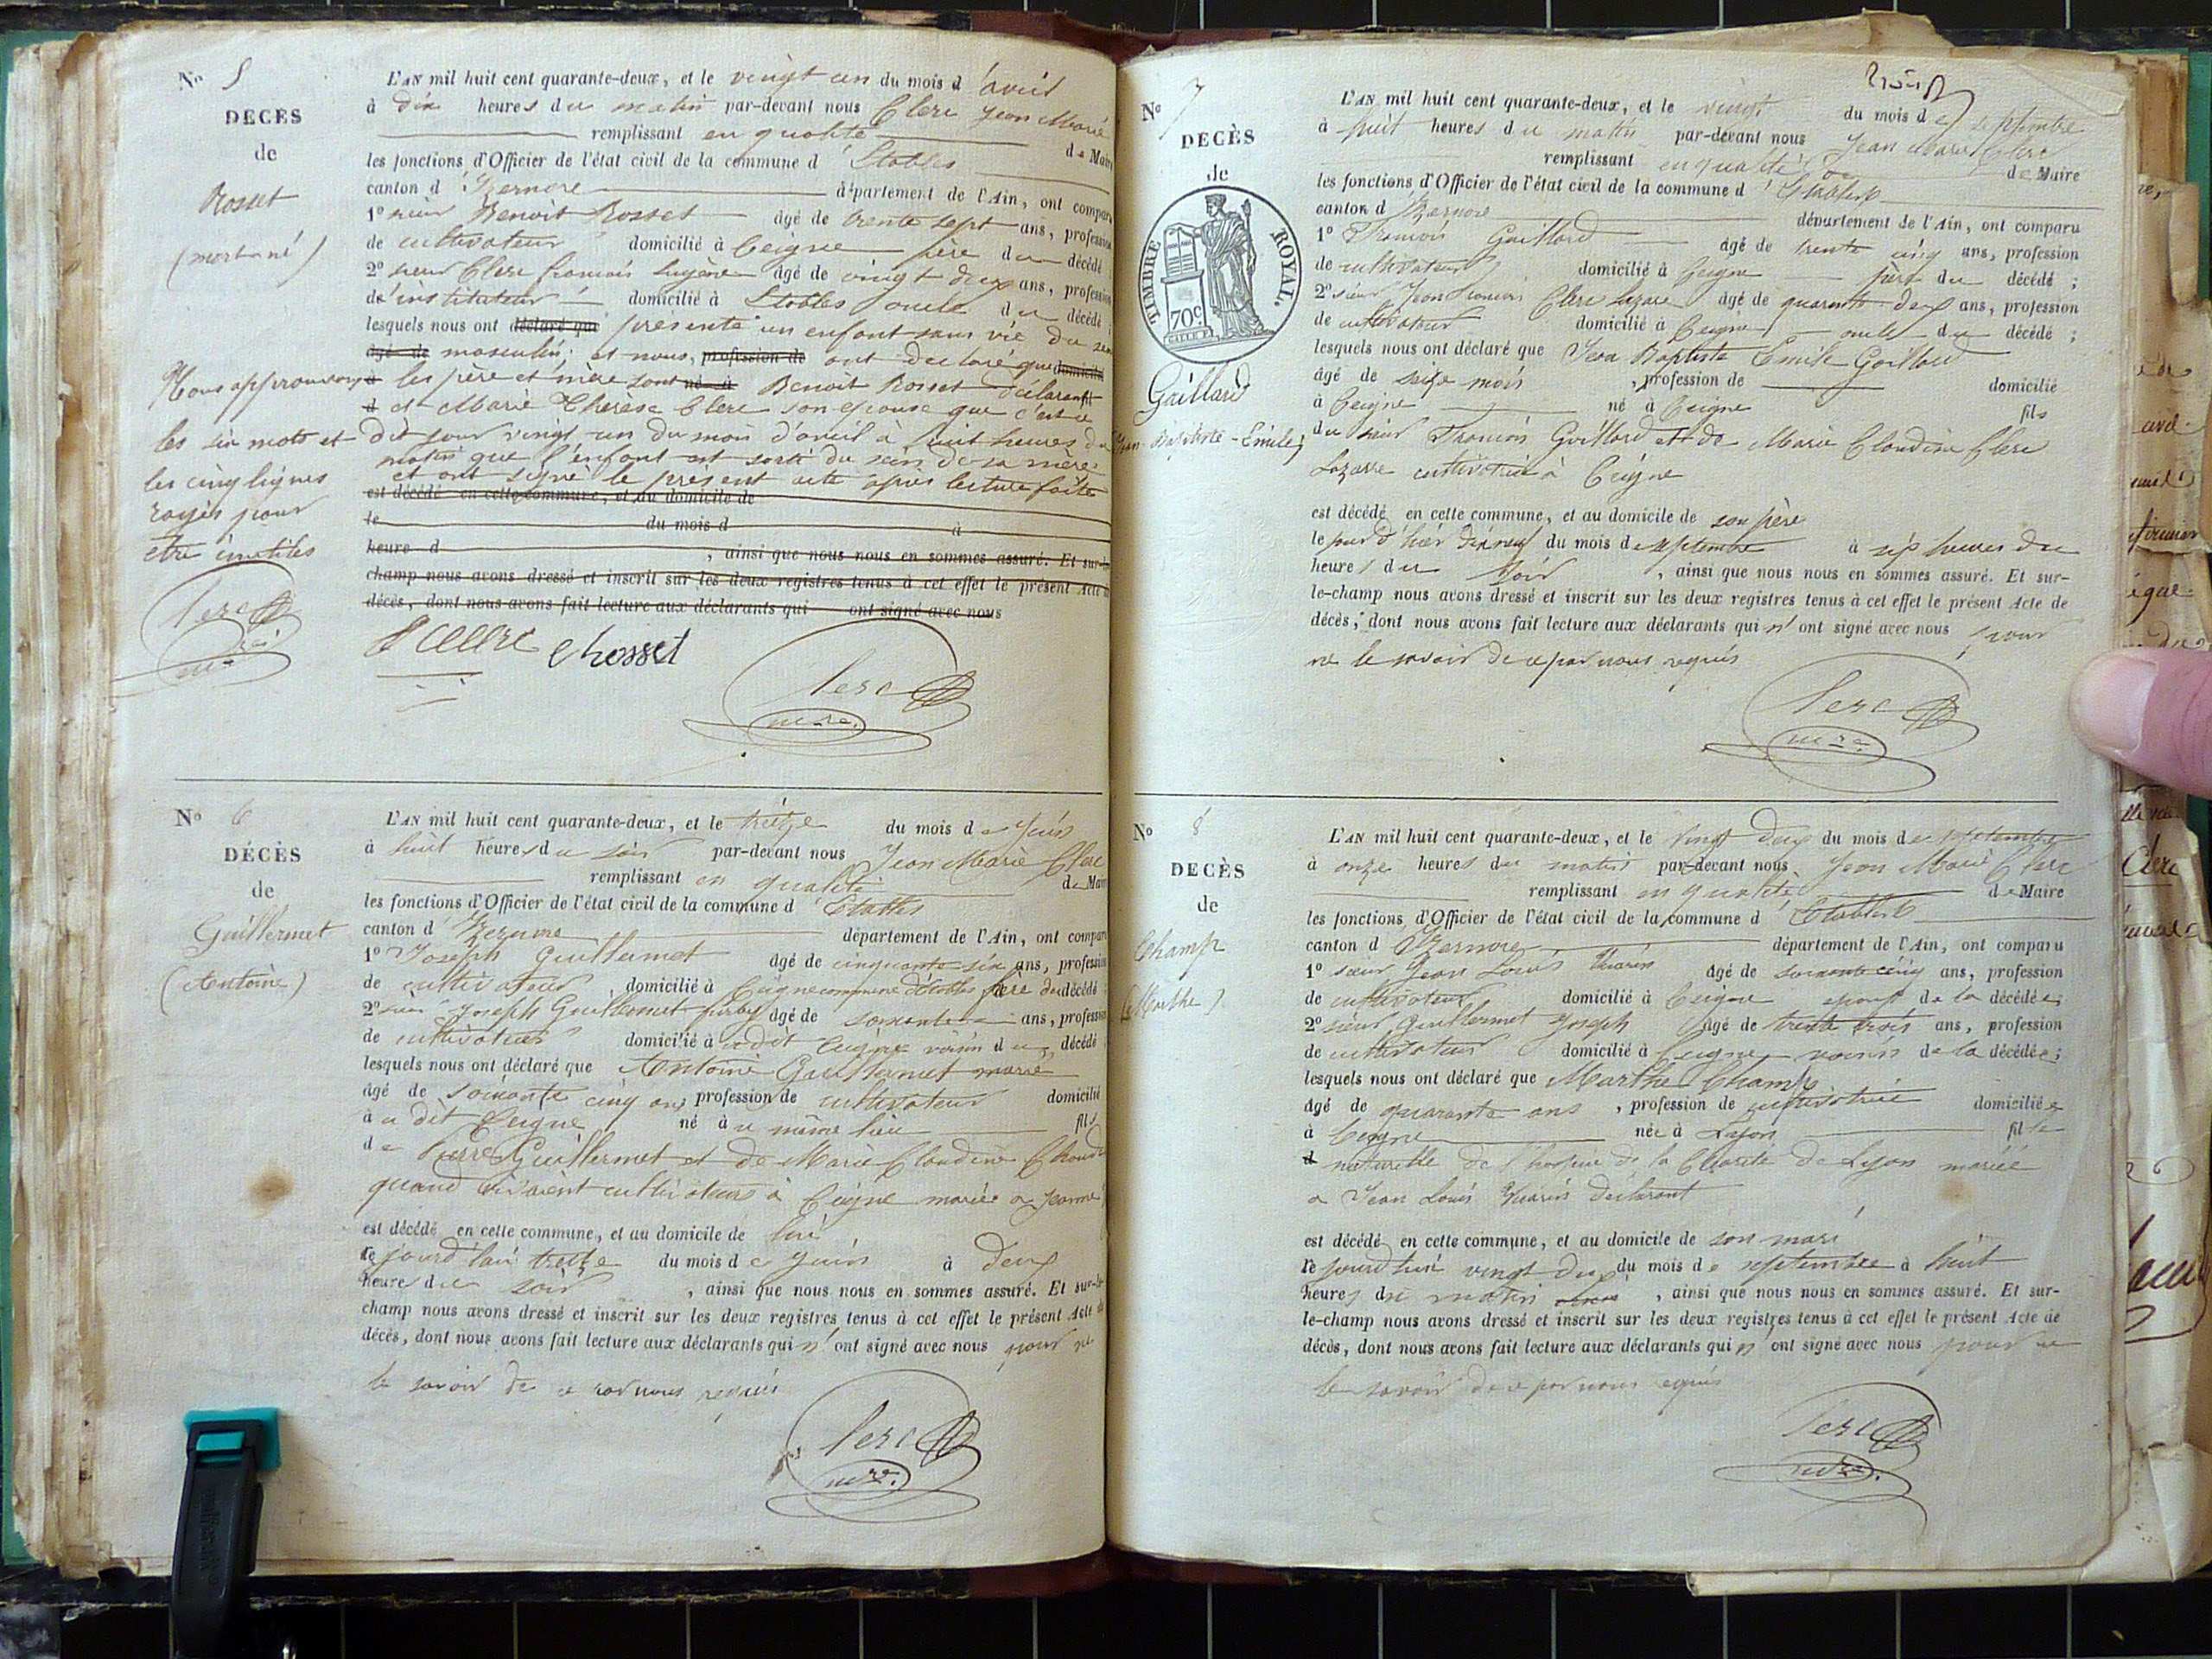 N° 5
DÉCÈS
de
Rosset
(mort-né)
L'AN mil huit cent quarante-deux, et le vingt un du mois d'avril
à dix heures du matin par-devant nous Clerc Jean Marie
remplissant en qualité de Maire
les fonctions d'Officier de l'état civil de la commune d'Etables
canton d'Izernore département de l'Ain, ont comparu
1° sieur Benoit Rosset âgé de trente sept ans, profession
de cultivateur domicilié à Ceigne père du décédé
2° sieur Clerc françois âgé de vingt deux ans, profession
de instituteur domicilié à Etables oncle du décédé ;
lesquels nous ont déclaré que présenté un enfant sans vie du sexe
âgé de masculin; et nous, profession de ont declaré que domicilié
à les père et mère sont né à Benoit Rosset déclarant
d et Marie Thérèse Clerc son epouse que c'est ce
dit jour vingt un du mois d'avril à huit heures du
matin que l'enfant est sorti du sein de sa mère
et ont signé le présent acte après lecture faite
est décédé en cette commune, et au domicile de
le du mois d à
heure d , ainsi que nous nous en sommes assuré. Et sur-le
champ nous avons dressé et inscrit sur les deux registres tenus à cet effet le présent Acte de
décès, dont nous avons fait lecture aux déclarants qui ont signé avec nous
Nous approuvons
les six mots et
les cinq lignes
rayés pour
etre inutiles
Clerc
mre
Clerc
Rosset
Clerc
mre.
N° 6
DÉCÈS
de
Guillermet
(Antoine)
L'AN mil huit cent quarante-deux, et le treize du mois de Juin
à huit heures du soir par-devant nous Jean Marie Clerc
remplissant en qualité de Maire
les fonctions d'Officier de l'état civil de la commune d'Etables
canton d'Izernore département de l'Ain, ont comparu
1° Joseph Guillermet âgé de cinquante six ans, profession
de cultivateur domicilié à Ceigne commune d'Etables frère du décédé
2° sieur Joseph Guillermet âgé de soixante ans, profession
de cultivateur domicilié à u dit Ceigne voisin du décédé
lesquels nous ont déclaré que Antoine Guillermet marié
âgé de soixante cinq ans profession de cultivateur domicilié
à u dit Ceigne né à u même lieu fils
de Pierre Guillermet et de Marie Claudine
quand vivaient cultivateurs à Ceigne mariée a Jeanne
est décédé en cette commune, et au domicile de lui
le jourd'hui treize du mois de Juin à deux
heure du soir , ainsi que nous nous en sommes assuré. Et sur-le-
champ nous avons dressé et inscrit sur les deux registres tenus à cet effet le présent Acte de
décès, dont nous avons fait lecture aux déclarants qui n'ont signé avec nous pour ne
le savoir de ce par nous requis
Clerc
mre.
N° 7
DÉCÈS
de
TIMBRE ROYAL.
70c
Gaillard
Jean-Baptiste-Emile
L'AN mil huit cent quarante-deux, et le vingt du mois de septembre
à huit heures du matin par-devant nous Jean Marie Clerc
remplissant en qualité de Maire
les fonctions d'Officier de l'état civil de la commune d'Etables
canton d'Izernore département de l'Ain, ont comparu
1° François Gaillard âgé de trente cinq ans, profession
de cultivateur domicilié à Ceigne père du décédé ;
2° sieur Jean François Clerc Lazare âgé de quarante deux ans, profession
de cultivateur domicilié à Ceigne oncle du décédé ;
lesquels nous ont déclaré que Jean Baptiste Emile Gaillard
âgé de seize mois , profession de domicilié
à Ceigne né à Ceigne fils
du sieur François Gaillard et de Marie Claudine Clerc
Lazarre cultivatrice à Ceigne
est décédé en cette commune, et au domicile de son père
le jour d'hier dix neuf du mois de septembre à sept heures du
heures du soir , ainsi que nous nous en sommes assuré. Et sur-
le-champ nous avons dressé et inscrit sur les deux registres tenus à cet effet le présent Acte de
décès, dont nous avons fait lecture aux déclarants qui n'ont signé avec nous pour
ne le savoir de ce par nous requis
Clerc
mre.
N° 8
DÉCÈS
de
Champ
(Marthe)
L'AN mil huit cent quarante-deux, et le vingt deux du mois de septembre
à onze heures du matin par-devant nous Jean Marie Clerc
remplissant en qualité de Maire
les fonctions d'Officier de l'état civil de la commune d'Etables
canton d'Izernore département de l'Ain, ont comparu
1° sieur Jean Louis âgé de soixante cinq ans, profession
de cultivateur domicilié à Ceigne epoux de la décédée;
2° sieur Guillermet Joseph âgé de trente trois ans, profession
de cultivateur domicilié à Ceigne voisin de la décédée;
lesquels nous ont déclaré que Marthe Champ
âgé de quarante ans , profession de cultivatrice domiciliée
à Ceigne née à Lyon fille
d naturelle de l'hospice de la Charité de Lyon mariée
a Jean Louis déclarant
est décédé en cette commune, et au domicile de son mari
le jourd'hui vingt deux du mois de septembre à huit
heures du matin , ainsi que nous nous en sommes assuré. Et sur-
le-champ nous avons dressé et inscrit sur les deux registres tenus à cet effet le présent Acte de
décès, dont nous avons fait lecture aux déclarants qui n'ont signé avec nous pour ne
le savoir de ce par nous requis
Clerc
mre.